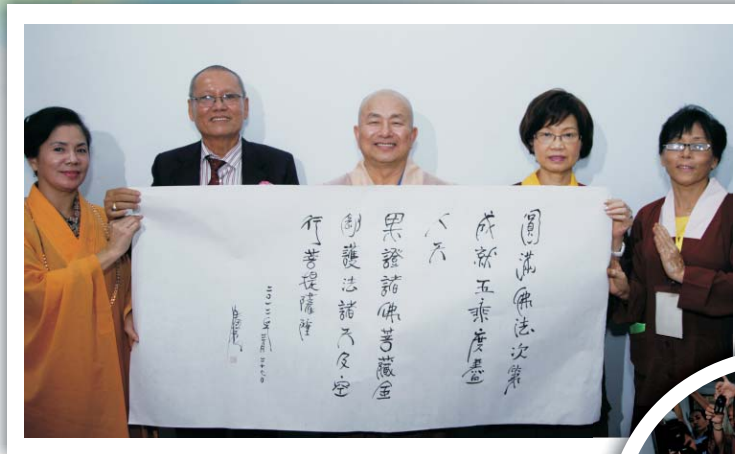 圓滿佛法次第
成就五乘度眾
人天
果證諸佛菩薩金
剛護法諸天及空
行菩提薩埵